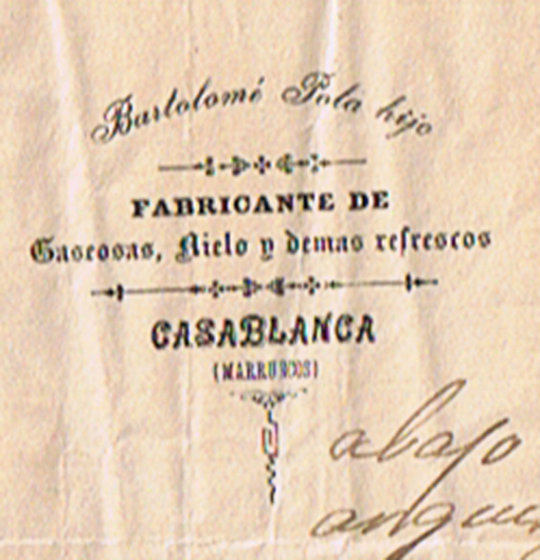 Bartolomé Pola hijo
FABRICANTE DE
Gaseosas, Hielo y demas refrescos
CASABLANCA
(MARRUECOS)
abajo